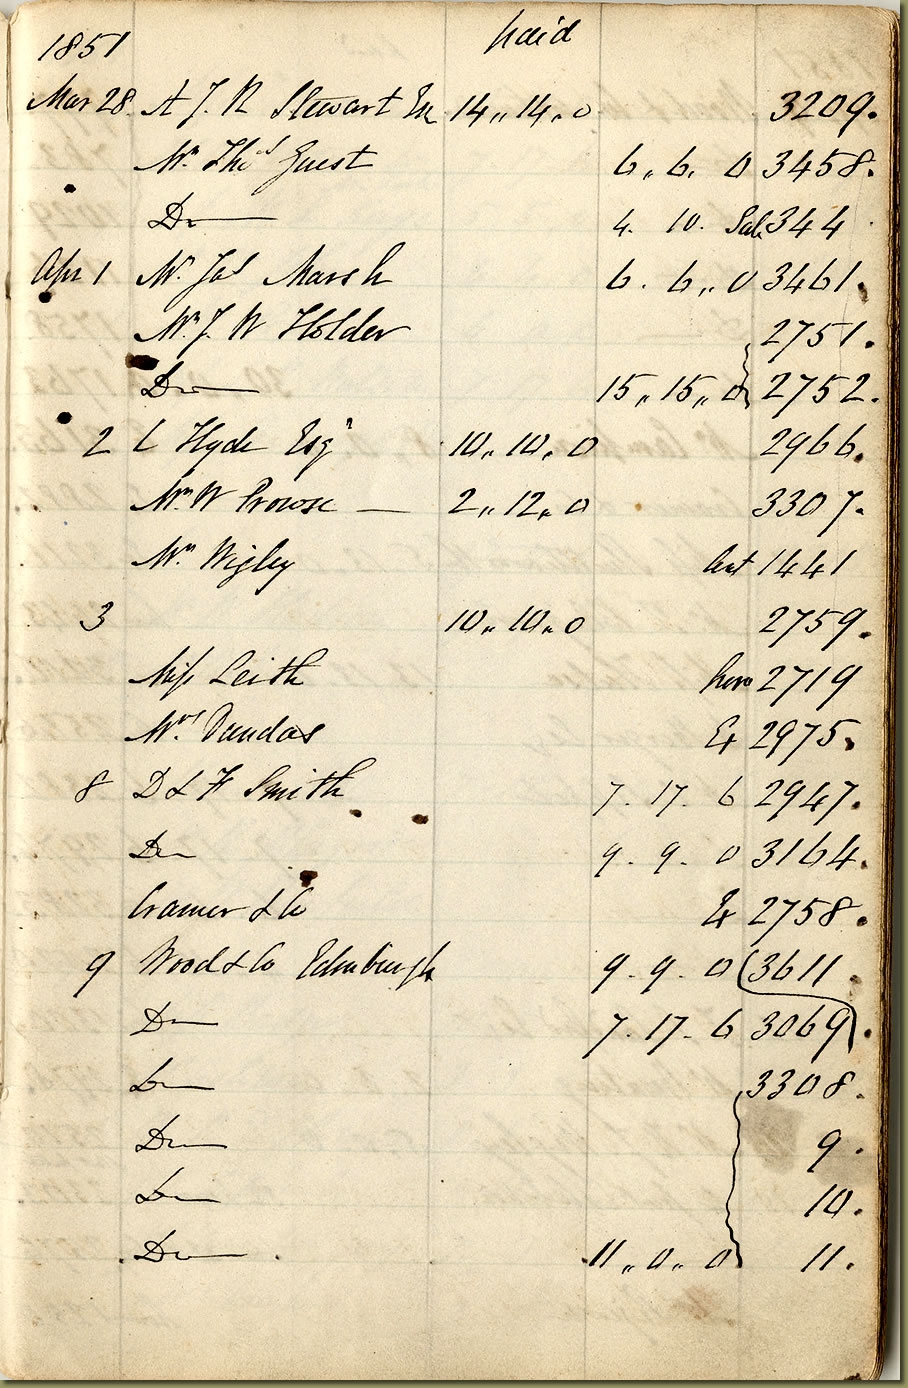 1851 paid
Mar 28. A J. R Stewart Esq 14,, 14,, 0 3209.
Mr. Thos Guest 6,, 6. 0 3458.
Do 4. 10. Sale 344
Apr 1 Mr. Jas Marsh 6. 6,, 0 3461.
Mr. J. W Holder 2751.
Do 15,, 15,, 0 2752.
2 C Hyde Esqr 10,, 10,, 0 2966.
Mr. W Prowse — 2,, 12,, 0 3307.
Mr Wigley 1441
3 10,, 10,, 0 2759.
Miss Leith 2719
Mrs. Dundas Ex 2975.
8 D & F Smith 7. 17. 6 2947.
Do 9. 9. 0 3164.
Cramer & Co Ex 2758.
9 Wood & Co Edinburgh 9. 9. 0 (3611
Do 7. 17. 6 3069) .
Do 3308.
Do 9.
Do 10.
Do 11,, 0,, 0 11.